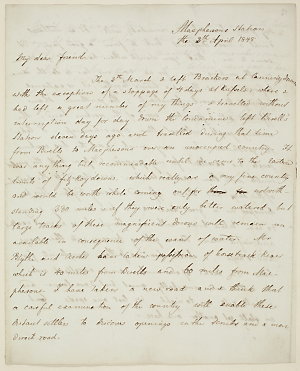 Macphersons Station
the 3rd April 1848
My dear friend
The 3rd March I left Brackers at Canning Downs
with the exception of a stoppage of 4 days at Cobble where I
had left a great number of my things I travelled without
interruption day for day down the Condamine left Birell's
Station eleven days ago and travelled during that time
from Birells to Macphersons over an unoccupied country. It
was anything but recommendable until I came to the eastern
limits of Fitzroy downs which really are a very fine country
and would be worth while coming out for
standing 640 miles if they were only better watered, but
large tracks of these magnificent downs will remain un
available in consequence of the want of water. Mr
Blyth and have taken possession of
which is 40 miles from Birells and 60 miles from Mac-
phersons I have taken a new road and I think that
a careful examination of the country will enable these
distant settler to discover openings in the scrubs and a more
direct road.